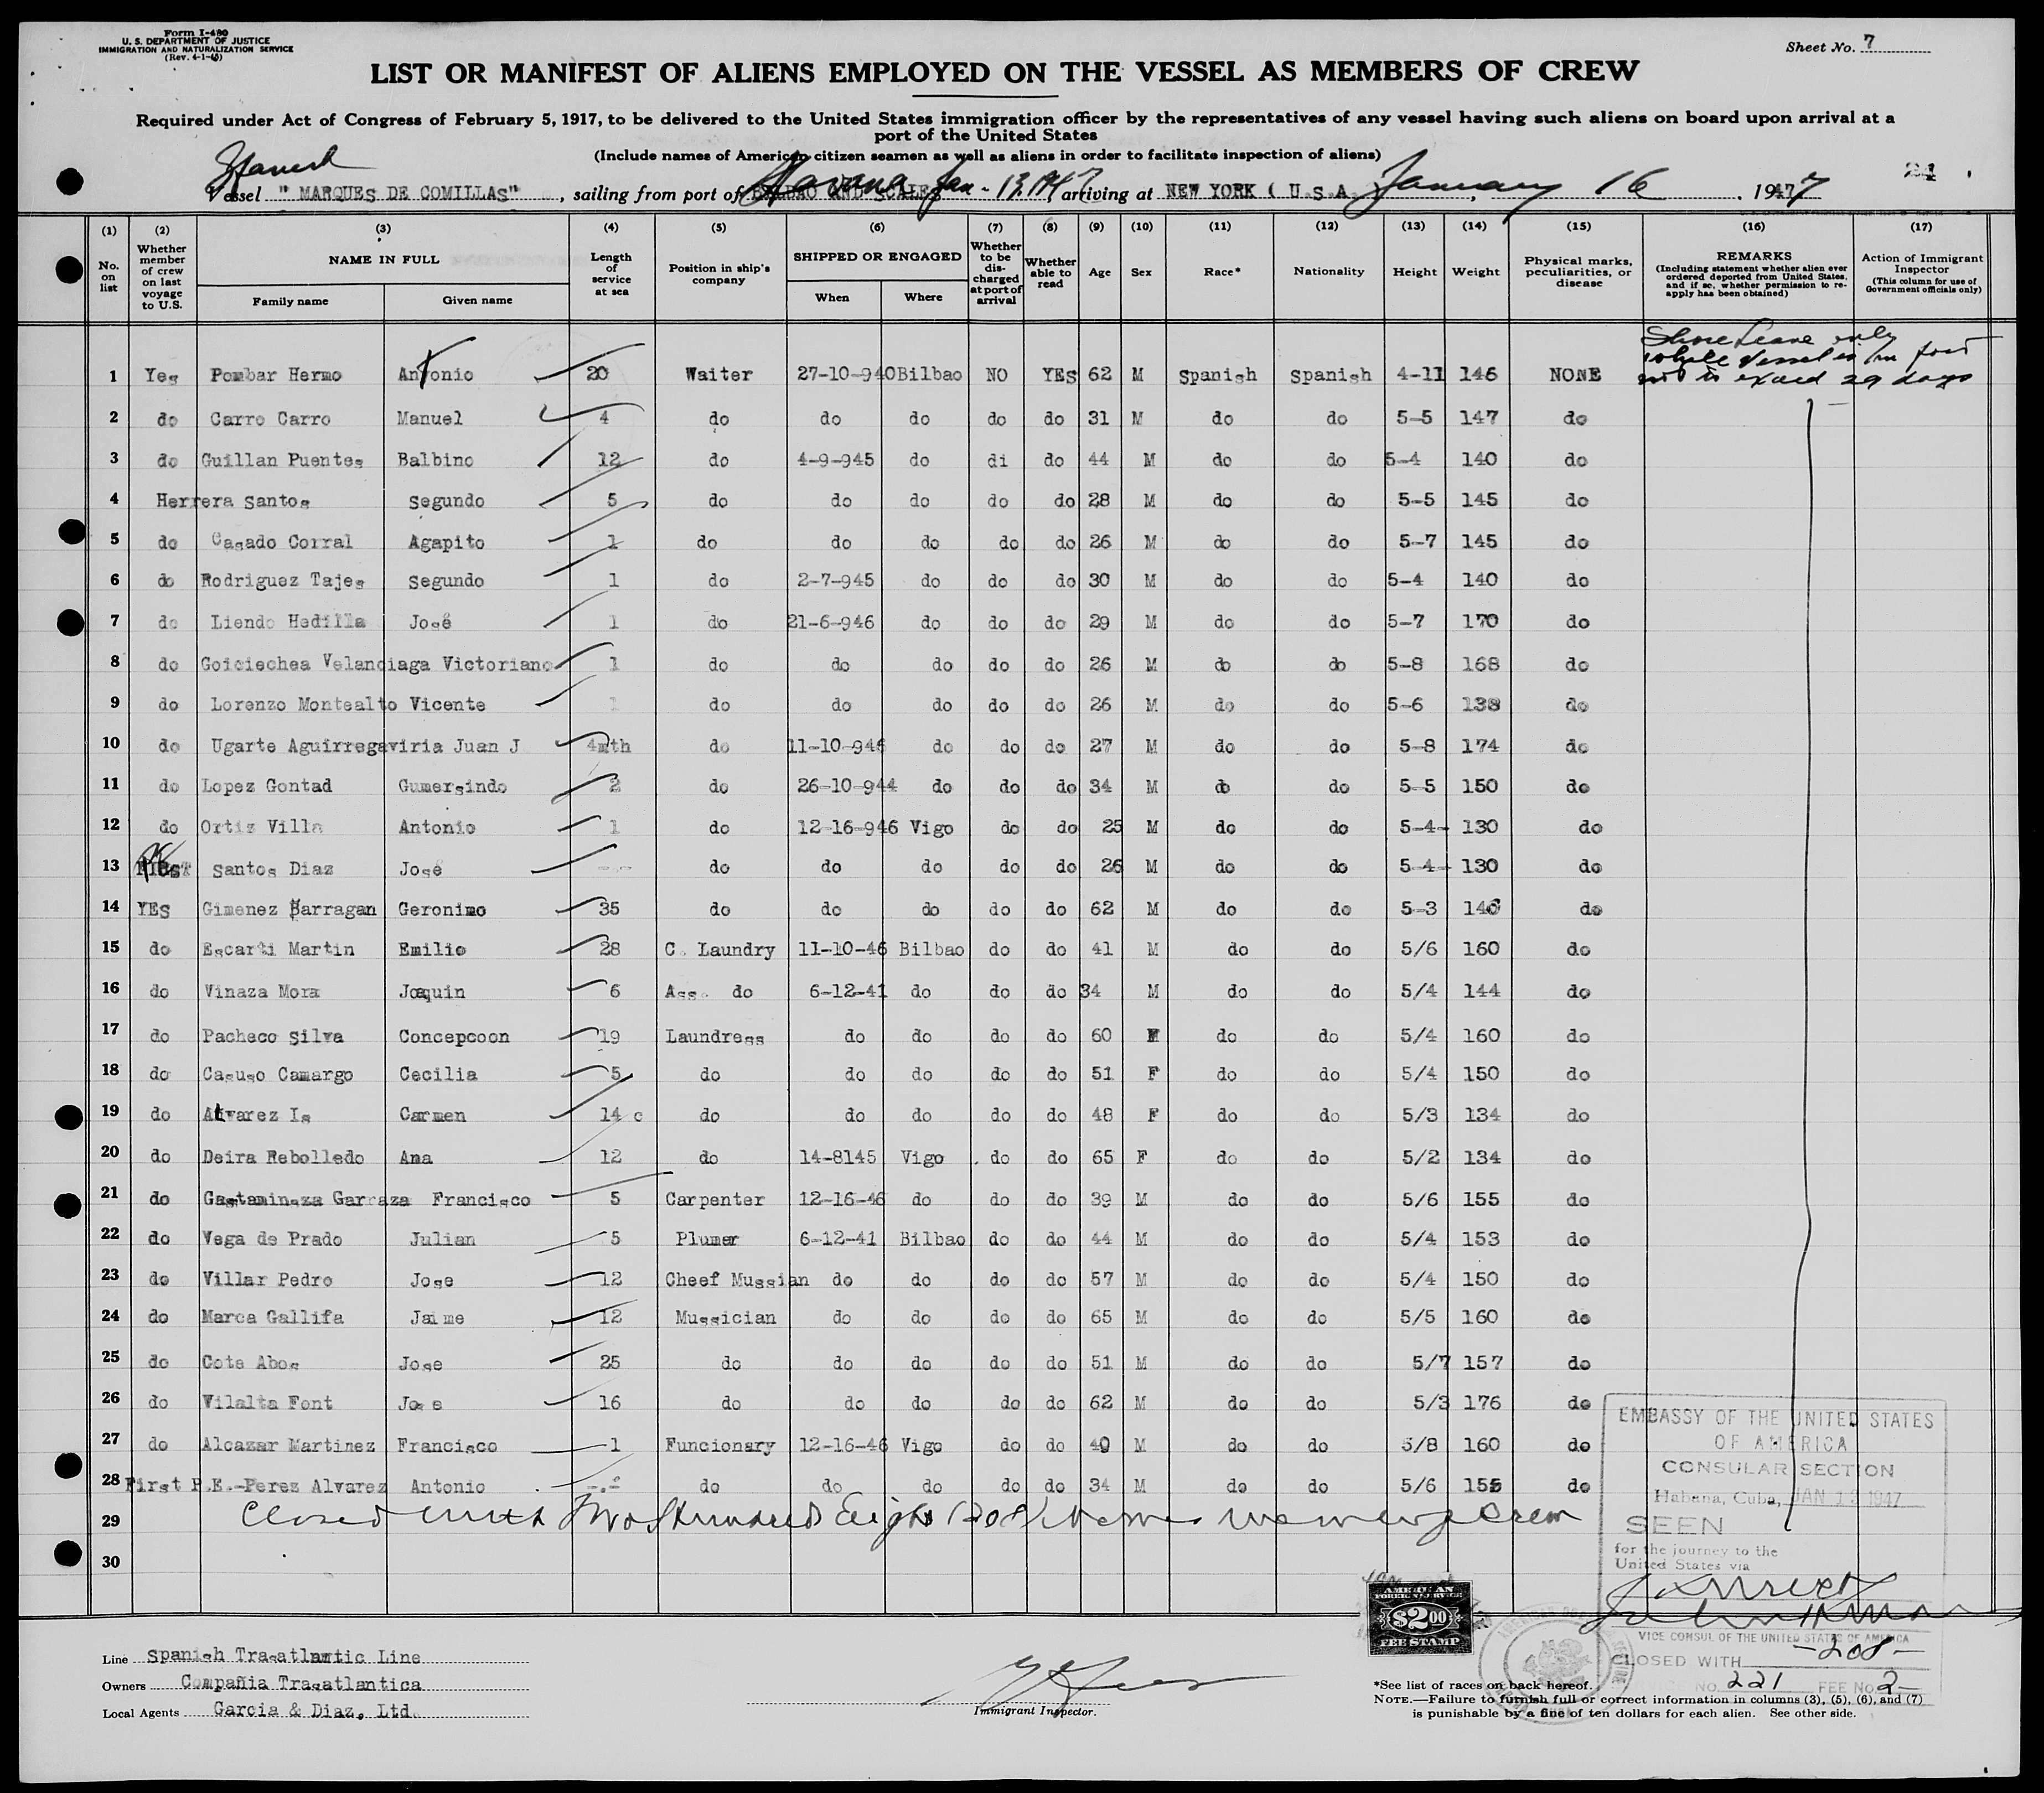 Form I-480
U. S. DEPARTMENT OF JUSTICE
IMMIGRATION AND NATURALIZATION SERVICE
(Rev. 4-1-45)
Sheet No. 7
LIST OR MANIFEST OF ALIENS EMPLOYED ON THE VESSEL AS MEMBERS OF CREW
Required under Act of Congress of February 5, 1917, to be delivered to the United States immigration officer by the representatives of any vessel having such aliens on board upon arrival at a
port of the United States
(Include names of American citizen seamen as well as aliens in order to facilitate inspection of aliens)
Spanish
Vessel " MARQUES DE COMILLAS" , sailing from port of BILBAO AND SCALES Havana Jan - 13, 1947 arriving at NEW YORK ( U.S.A. January 16, 1947
(1) (2) (3) (4) (5) (6) (7) (8) (9) (10) (11) (12) (13) (14) (15) (16) (17)
No. on list
Whether member of crew on last voyage to U.S.
NAME IN FULL
Family name
Given name
Length of service at sea
Position in ship's company
SHIPPED OR ENGAGED
When
Where
Whether to be discharged at port of arrival
Whether able to read
Age
Sex
Race*
Nationality
Height
Weight
Physical marks, peculiarities, or disease
REMARKS
(Including statement whether alien ever ordered deported from United States, and if so, whether permission to re-apply has been obtained)
Action of Immigrant Inspector
(This column for use of Government officials only)
Shore Leave only
while vessel is in port
not to exceed 29 days
1 Yes Pombar Hermo Antonio 20 Waiter 27-10-940 Bilbao NO YES 62 M Spanish Spanish 4-11 146 NONE
2 do Carro Carro Manuel 4 do do do do do 31 M do do 5-5 147 do
3 do Guillan Puentes Balbino 12 do 4-9-945 do di do 44 M do do 5-4 140 do
4 Herrera Santos Segundo 5 do do do do do 28 M do do 5-5 145 do
5 do Casado Corral Agapito 1 do do do do do 26 M do do 5-7 145 do
6 do Rodriguez Tajes Segundo 1 do 2-7-945 do do do 30 M do do 5-4 140 do
7 do Liendo Hedilla José 1 do 21-6-946 do do do 29 M do do 5-7 170 do
8 do Goiciechea Velanciaga Victoriano 1 do do do do do 26 M do do 5-8 168 do
9 do Lorenzo Montealto Vicente 1 do do do do do 26 M do do 5-6 138 do
10 do Ugarte Aguirregaviria Juan J 4mth do 11-10-946 do do do 27 M do do 5-8 174 do
11 do Lopez Gontad Gumersindo 2 do 26-10-944 do do do 34 M do do 5-5 150 do
12 do Ortiz Villa Antonio 1 do 12-16-946 Vigo do do 25 M do do 5-4- 130 do
13 Santos Diaz José do do do do do 26 M do do 5-4- 130 do
14 YES Gimenez Barragan Geronimo 35 do do do do do 62 M do do 5-3 146 do
15 do Escarti Martin Emilio 28 C. Laundry 11-10-46 Bilbao do do 41 M do do 5/6 160 do
16 do Vinaza Mora Joaquin 6 Ass. do 6-12-41 do do do 34 M do do 5/4 144 do
17 do Pacheco Silva Concepcoon 19 Laundress do do do do 60 do do 5/4 160 do
18 do Casuso Camargo Cecilia 5 do do do do do 51 F do do 5/4 150 do
19 do Alvarez Is Carmen 14 c do do do do do 48 F do do 5/3 134 do
20 do Deira Rebolledo Ana 12 do 14-8145 Vigo do do 65 F do do 5/2 134 do
21 do Gastaminsza Garraza Francisco 5 Carpenter 12-16-46 do do do 39 M do do 5/6 155 do
22 do Vega de Prado Julian 5 Plumer 6-12-41 Bilbao do do 44 M do do 5/4 153 do
23 do Villar Pedro Jose 12 Cheef Mussian do do do do 57 M do do 5/4 150 do
24 do Marca Gallifa Jaime 12 Mussician do do do do 65 M do do 5/5 160 do
25 do Cots Abos Jose 25 do do do do do 51 M do do 5/7 157 do
26 do Vilalta Font Jose 16 do do do do do 62 M do do 5/3 176 do
27 do Alcazar Martinez Francisco 1 Funcionary 12-16-46 Vigo do do 40 M do do 5/8 160 do
28 First P.E.-Perez Alvarez Antonio -.- do do do do do 34 M do do 5/6 155 do
29 Closed with Two Hundred Eight (208) Names members Crew
30
EMBASSY OF THE UNITED STATES
OF AMERICA
CONSULAR SECTION
Habana, Cuba, JAN 13 1947
SEEN
for the journey to the
United States via
VICE CONSUL OF THE UNITED STATES OF AMERICA
CLOSED WITH -208-
SERVICE NO. 221 FEE No. 2-
AMERICAN
FOREIGN SERVICE
$2.00
FEE STAMP
Line Spanish Trasatlantic Line
Owners Compañia Trasatlantica
Local Agents Garcia & Diaz, Ltd.
Immigrant Inspector.
*See list of races on back hereof.
NOTE.—Failure to furnish full or correct information in columns (3), (5), (6), and (7)
is punishable by a fine of ten dollars for each alien. See other side.